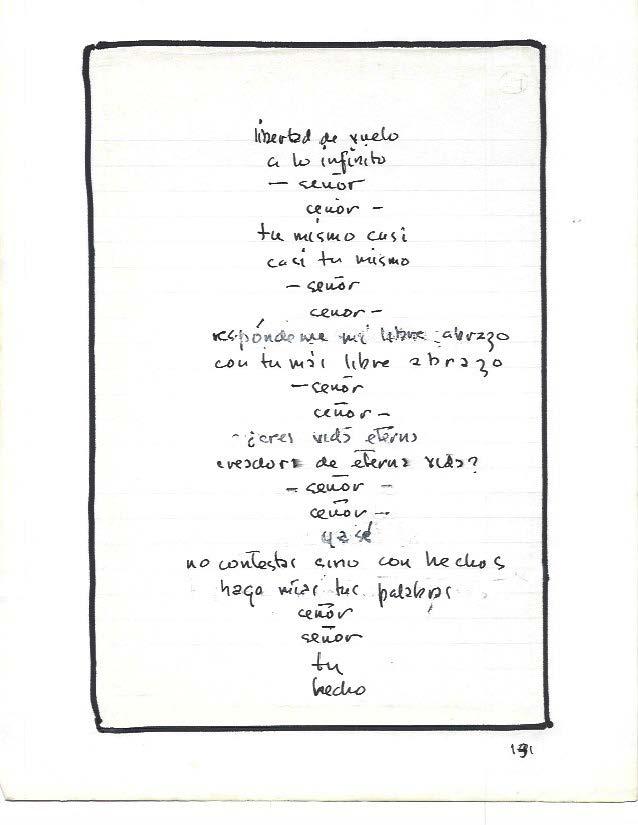 libertad de vuelo
a lo infinito
— señor
señor —
tu mismo casi
casi tu mismo
— señor
señor —
respóndeme mi libre abrazo
con tu más libre abrazo
— señor
señor —
- ¿eres vida eterna
creadora de eterna vida?
— señor —
señor —
ya sé
no contestas sino con hechos
hago mías tus palabras
señor
señor
tu
hecho